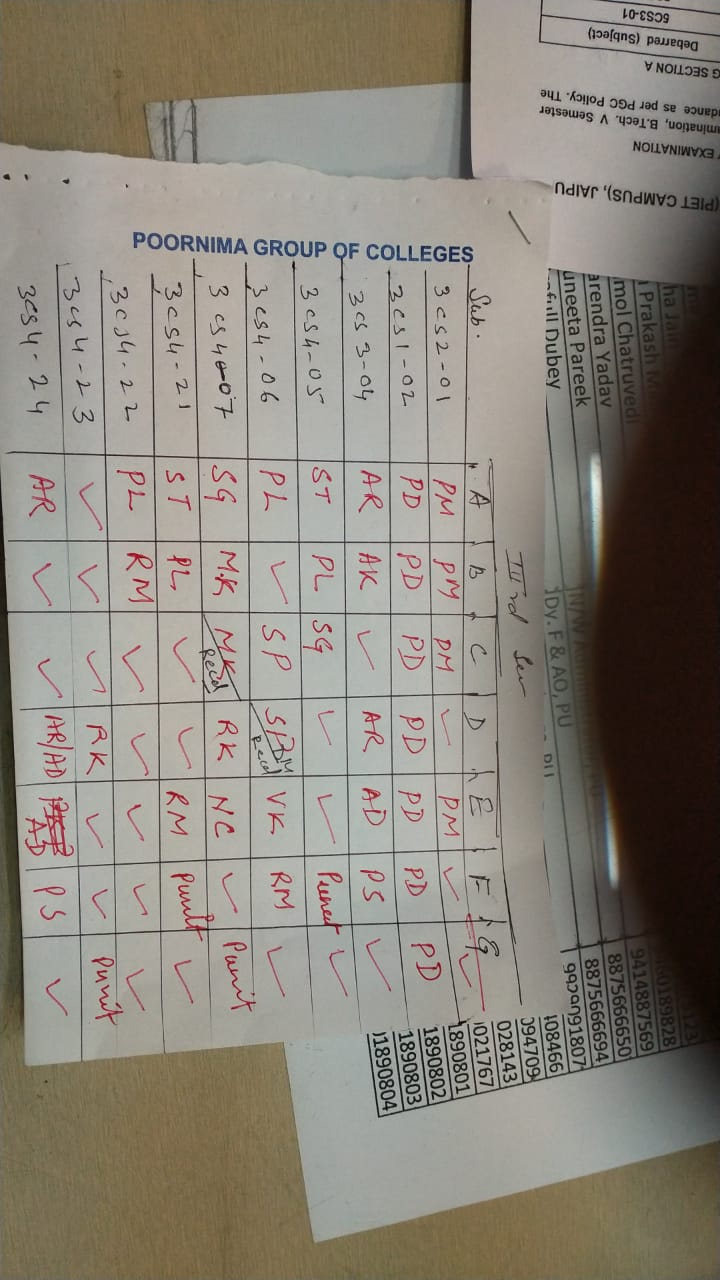 (PIET CAMPUS), JAIPU
EXAMINATION
mination, B.Tech. V Semester
dance as per PGC Policy. The
G SECTION A
Debarred (Subject)
5CS3-01
ha Jain
Prakash
mol Chatruvedi
arendra Yadav
uneeta Pareek
nfull Dubey
N/W Administration, PU
Dy. F & AO, PU
PU
123
460189828
9414887569
8875666650
8875666694
9929091807
408466
094709
028143
021767
1890801
1890802
1890803
01890804
POORNIMA GROUP OF COLLEGES
IIIrd Sem
Sub. A B C D E F G
3CS2-01 PM PM PM ✓ PM ✓ ✓
3CS1-02 PD PD PD PD PD PD PD
3CS3-04 AR AK ✓ AR AD PS ✓
3CS4-05 ST PL SG ✓ ✓ Puneet ✓
3CS4-06 PL ✓ SP SP Recd VK RM ✓
3CS4-07 SG M.K MK Recd RK NC ✓ Punit
3CS4-21 ST PL ✓ ✓ RM Punit ✓
3CS4-22 PL RM ✓ ✓ ✓ ✓ ✓
3CS4-23 ✓ ✓ ✓ RK ✓ ✓ Punit
3CS4-24 AR ✓ ✓ AR/AD AD PS ✓